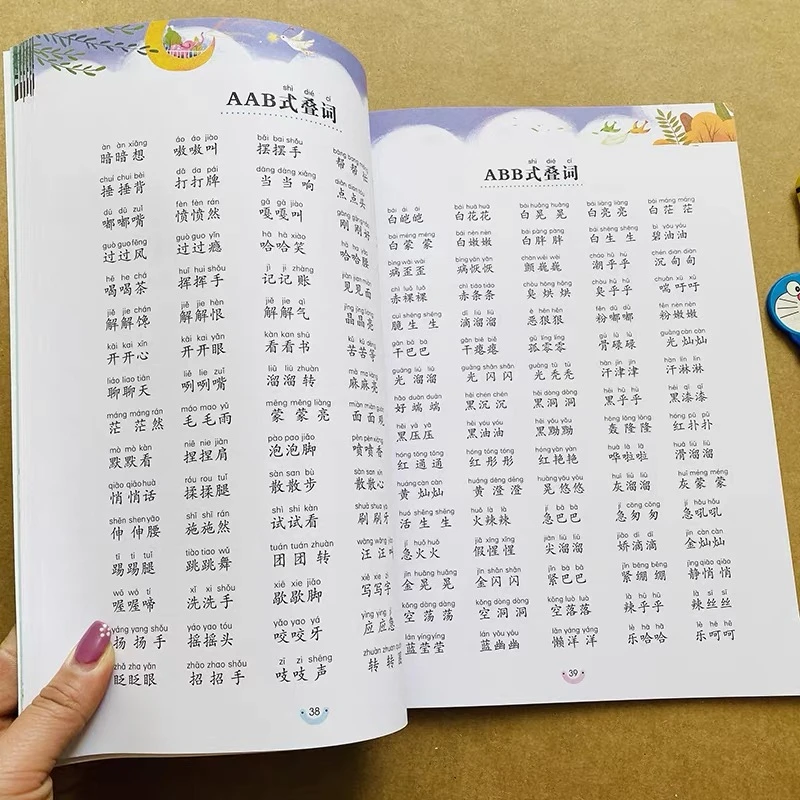 shì dié cí
AAB式叠词
àn àn xiǎng áo áo jiào bǎi bai shǒu
暗暗想 嗷嗷叫 摆摆手 帮帮忙
chuí chuí bèi dǎ da pái dāng dāng xiǎng diǎn diǎn tóu
捶捶背 打打牌 当当响 点点头
dū dū zuǐ fèn fèn rán gā gā jiào
嘟嘟嘴 愤愤然 嘎嘎叫 刚刚好
guò guo fēng guò guo yǐn hā hā xiào
过过风 过过瘾 哈哈笑 哈哈
hē he chá huī huī shǒu jì ji zhàng
喝喝茶 挥挥手 记记账 见见面
jiě jie chán jiě jie hèn jiě jie qì
解解馋 解解恨 解解气 晶晶亮
kāi kai xīn kāi kai yǎn kàn kan shū
开开心 开开眼 看看书 苦苦等
liáo liao tiān liě lie zuǐ liū liū zhuàn
聊聊天 咧咧嘴 溜溜转 麻麻亮
máng máng rán máo mao yǔ mēng mēng liàng
茫茫然 毛毛雨 蒙蒙亮 面面
mò mò kàn niē nie jiān pào pao jiǎo
默默看 捏捏肩 泡泡脚 喷喷香
qiāo qiāo huà róu rou tuǐ sàn san bù
悄悄话 揉揉腿 散散步 散散心
shēn shen yāo shī shī rán shì shi kàn
伸伸腰 施施然 试试看 刷刷牙
tī ti tuǐ tiào tiao wǔ tuán tuán zhuàn
踢踢腿 跳跳舞 团团转 汪汪叫
wō wō tí xǐ xi shǒu xiē xie jiǎo
喔喔啼 洗洗手 歇歇脚 写写字
yáng yang shǒu yáo yao tóu yǎo yao yá
扬扬手 摇摇头 咬咬牙 应应急
zhǎ zha yǎn zhāo zhao shǒu zī zī shēng
眨眨眼 招招手 吱吱声 转转
38
shì dié cí
ABB式叠词
bái ái ái bái huā huā bái huǎng huǎng bái liàng liàng bái máng máng
白皑皑 白花花 白晃晃 白亮亮 白茫茫
bái méng méng bái nèn nèn bái pàng pàng bái shēng shēng bì yóu yóu
白蒙蒙 白嫩嫩 白胖胖 白生生 碧油油
bìng wāi wāi bìng yān yān chàn wēi wēi cháo hū hū chén diān diān
病歪歪 病恹恹 颤巍巍 潮乎乎 沉甸甸
chì luǒ luǒ chì tiáo tiáo chòu hōng hōng chòu hū hū chuǎn xū xū
赤裸裸 赤条条 臭烘烘 臭乎乎 喘吁吁
cuì shēng shēng dī liū liū è hěn hěn fěn dū dū fěn nèn nèn
脆生生 滴溜溜 恶狠狠 粉嘟嘟 粉嫩嫩
gān bā bā gān biě biě gū líng líng gǔ lù lù guāng càn càn
干巴巴 干瘪瘪 孤零零 骨碌碌 光灿灿
guāng liū liū guāng shǎn shǎn guāng tū tū hàn jīn jīn hàn lín lín
光溜溜 光闪闪 光秃秃 汗津津 汗淋淋
hǎo duān duān hēi chén chén hēi dòng dòng hēi hū hū hēi qī qī
好端端 黑沉沉 黑洞洞 黑乎乎 黑漆漆
hēi yā yā hēi yóu yóu hēi yǒu yǒu hōng lōng lōng hóng pū pū
黑压压 黑油油 黑黝黝 轰隆隆 红扑扑
hóng tōng tōng hóng tóng tóng hóng yàn yàn huā lā lā huá liū liū
红通通 红彤彤 红艳艳 哗啦啦 滑溜溜
huáng càn càn huáng dèng dèng huàng yōu yōu huī liū liū huī méng méng
黄灿灿 黄澄澄 晃悠悠 灰溜溜 灰蒙蒙
huó shēng shēng huǒ là là jí bā bā jí cōng cōng jí hǒu hǒu
活生生 火辣辣 急巴巴 急匆匆 急吼吼
jí huǒ huǒ jiǎ xīng xīng jiān liū liū jiāo dī dī jīn càn càn
急火火 假惺惺 尖溜溜 娇滴滴 金灿灿
jīn huǎng huǎng jīn shǎn shǎn jǐn bā bā jǐn bēng bēng jìng qiāo qiāo
金晃晃 金闪闪 紧巴巴 紧绷绷 静悄悄
kōng dàng dàng kōng dòng dòng kōng luò luò là hū hū là sī sī
空荡荡 空洞洞 空落落 辣乎乎 辣丝丝
lán yíng yíng lán yōu yōu lǎn yáng yáng lè hā hā lè hē hē
蓝莹莹 蓝幽幽 懒洋洋 乐哈哈 乐呵呵
39